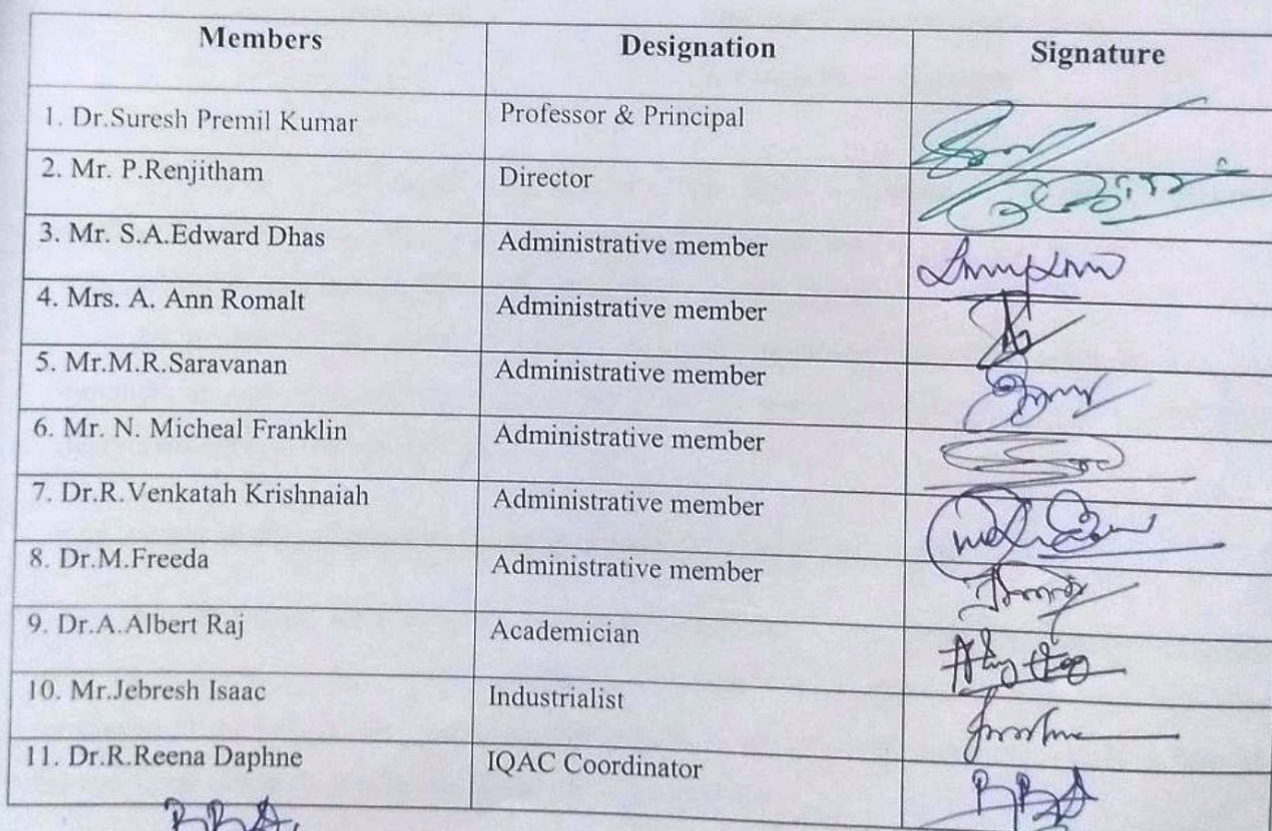 Members Designation Signature
1. Dr.Suresh Premil Kumar Professor & Principal
2. Mr. P.Renjitham Director
3. Mr. S.A.Edward Dhas Administrative member
4. Mrs. A. Ann Romalt Administrative member
5. Mr.M.R.Saravanan Administrative member
6. Mr. N. Micheal Franklin Administrative member
7. Dr.R.Venkatah Krishnaiah Administrative member
8. Dr.M.Freeda Administrative member
9. Dr.A.Albert Raj Academician
10. Mr.Jebresh Isaac Industrialist
11. Dr.R.Reena Daphne IQAC Coordinator